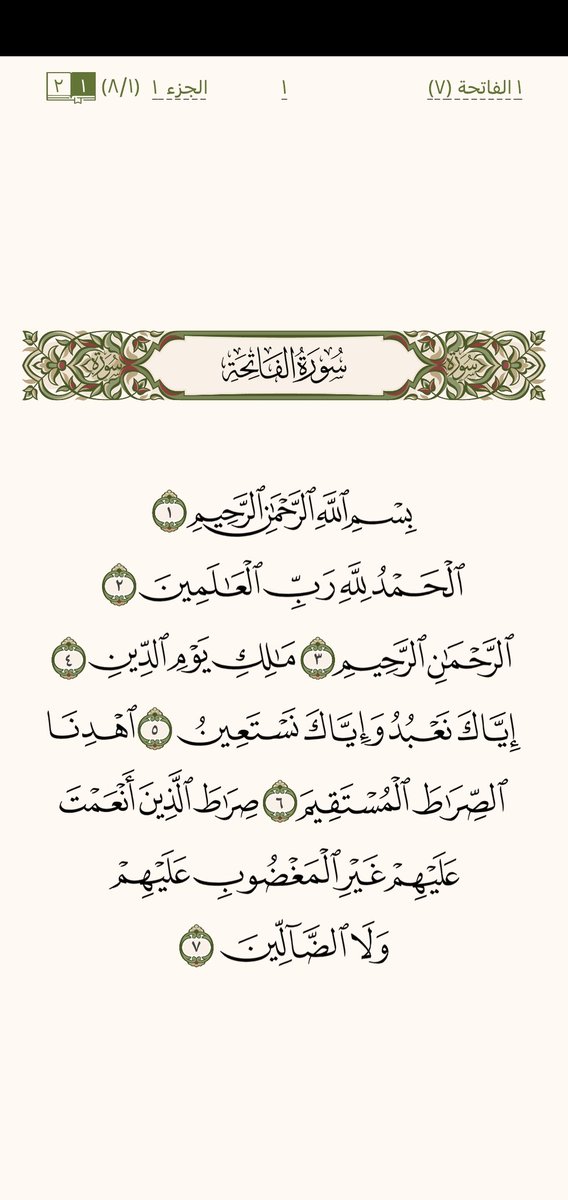 ١ الفاتحة (٧) ١ الجزء ١ (٨/١) ١ ٢
سُورَةُ سُورَةُ الفَاتِحَةِ سُورَةُ
بِسْمِ ٱللَّهِ ٱلرَّحْمَٰنِ ٱلرَّحِيمِ ١
ٱلْحَمْدُ لِلَّهِ رَبِّ ٱلْعَٰلَمِينَ ٢
ٱلرَّحْمَٰنِ ٱلرَّحِيمِ ٣ مَٰلِكِ يَوْمِ ٱلدِّينِ ٤
إِيَّاكَ نَعْبُدُ وَإِيَّاكَ نَسْتَعِينُ ٥ ٱهْدِنَا
ٱلصِّرَٰطَ ٱلْمُسْتَقِيمَ ٦ صِرَٰطَ ٱلَّذِينَ أَنْعَمْتَ
عَلَيْهِمْ غَيْرِ ٱلْمَغْضُوبِ عَلَيْهِمْ
وَلَا ٱلضَّآلِّينَ ٧